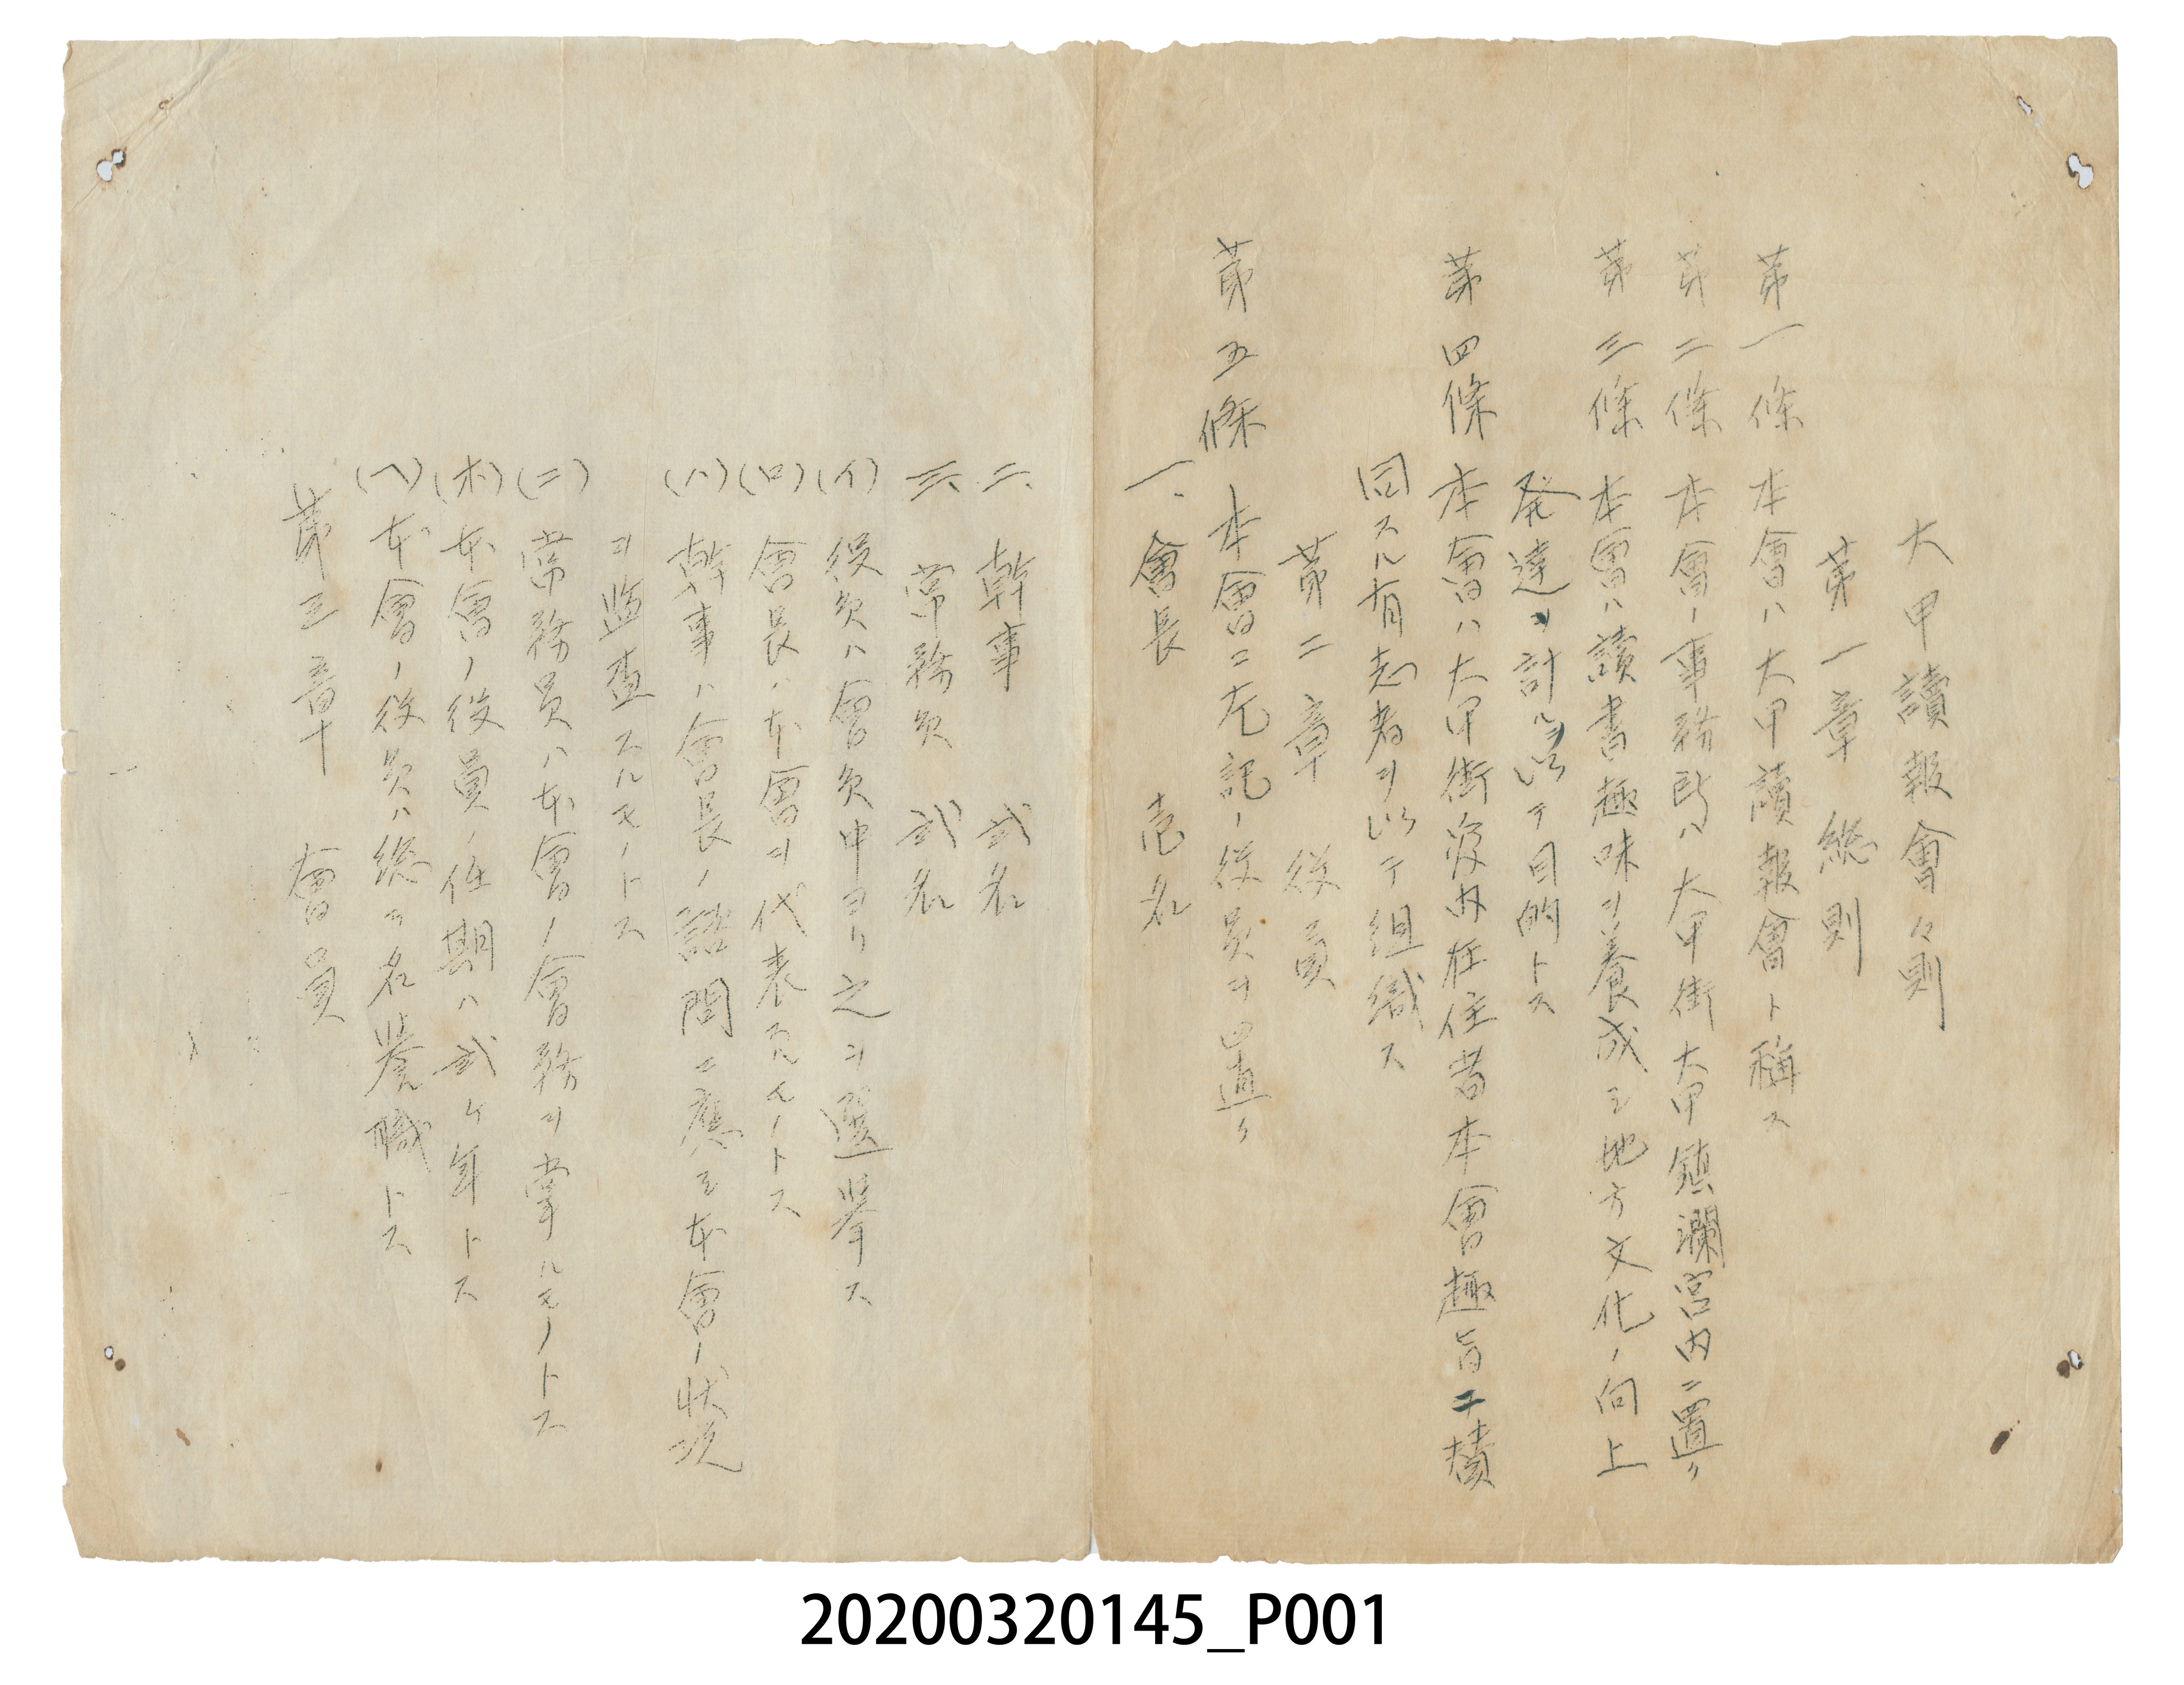 大甲讀報會々則
第一章 総則
第一條 本會ハ大甲讀報會ト稱ス
第二條 本會ノ事務所ハ大甲街大甲鎮瀾宮内ニ置ク
第三條 本會ハ讀書趣味ヲ養成シ地方文化ノ向上
発達ヲ計ルヲ以テ目的トス
第四條 本會ハ大甲街及内在住者本會趣旨ニ賛
同スル有志者ヲ以テ組織ス
第二章 役員
第五條 本會ニ左記ノ役員ヲ置ク
一、會長 壱名
二、幹事 弍名
三、常務員 弍名
(イ) 役員ハ會員中ヨリ之ヲ選挙ス
(ロ) 會長ハ本會ヲ代表スルモノトス
(ハ) 幹事ハ會長ノ諮問ニ應シ本會ノ状況
ヲ監査スルモノトス
(ニ) 常務員ハ本會ノ會務ヲ掌ルモノトス
(ホ) 本會ノ役員ノ任期ハ弍ケ年トス
(ヘ) 本會ノ役員ハ総テ名誉職トス
第三章 會員
20200320145_P001